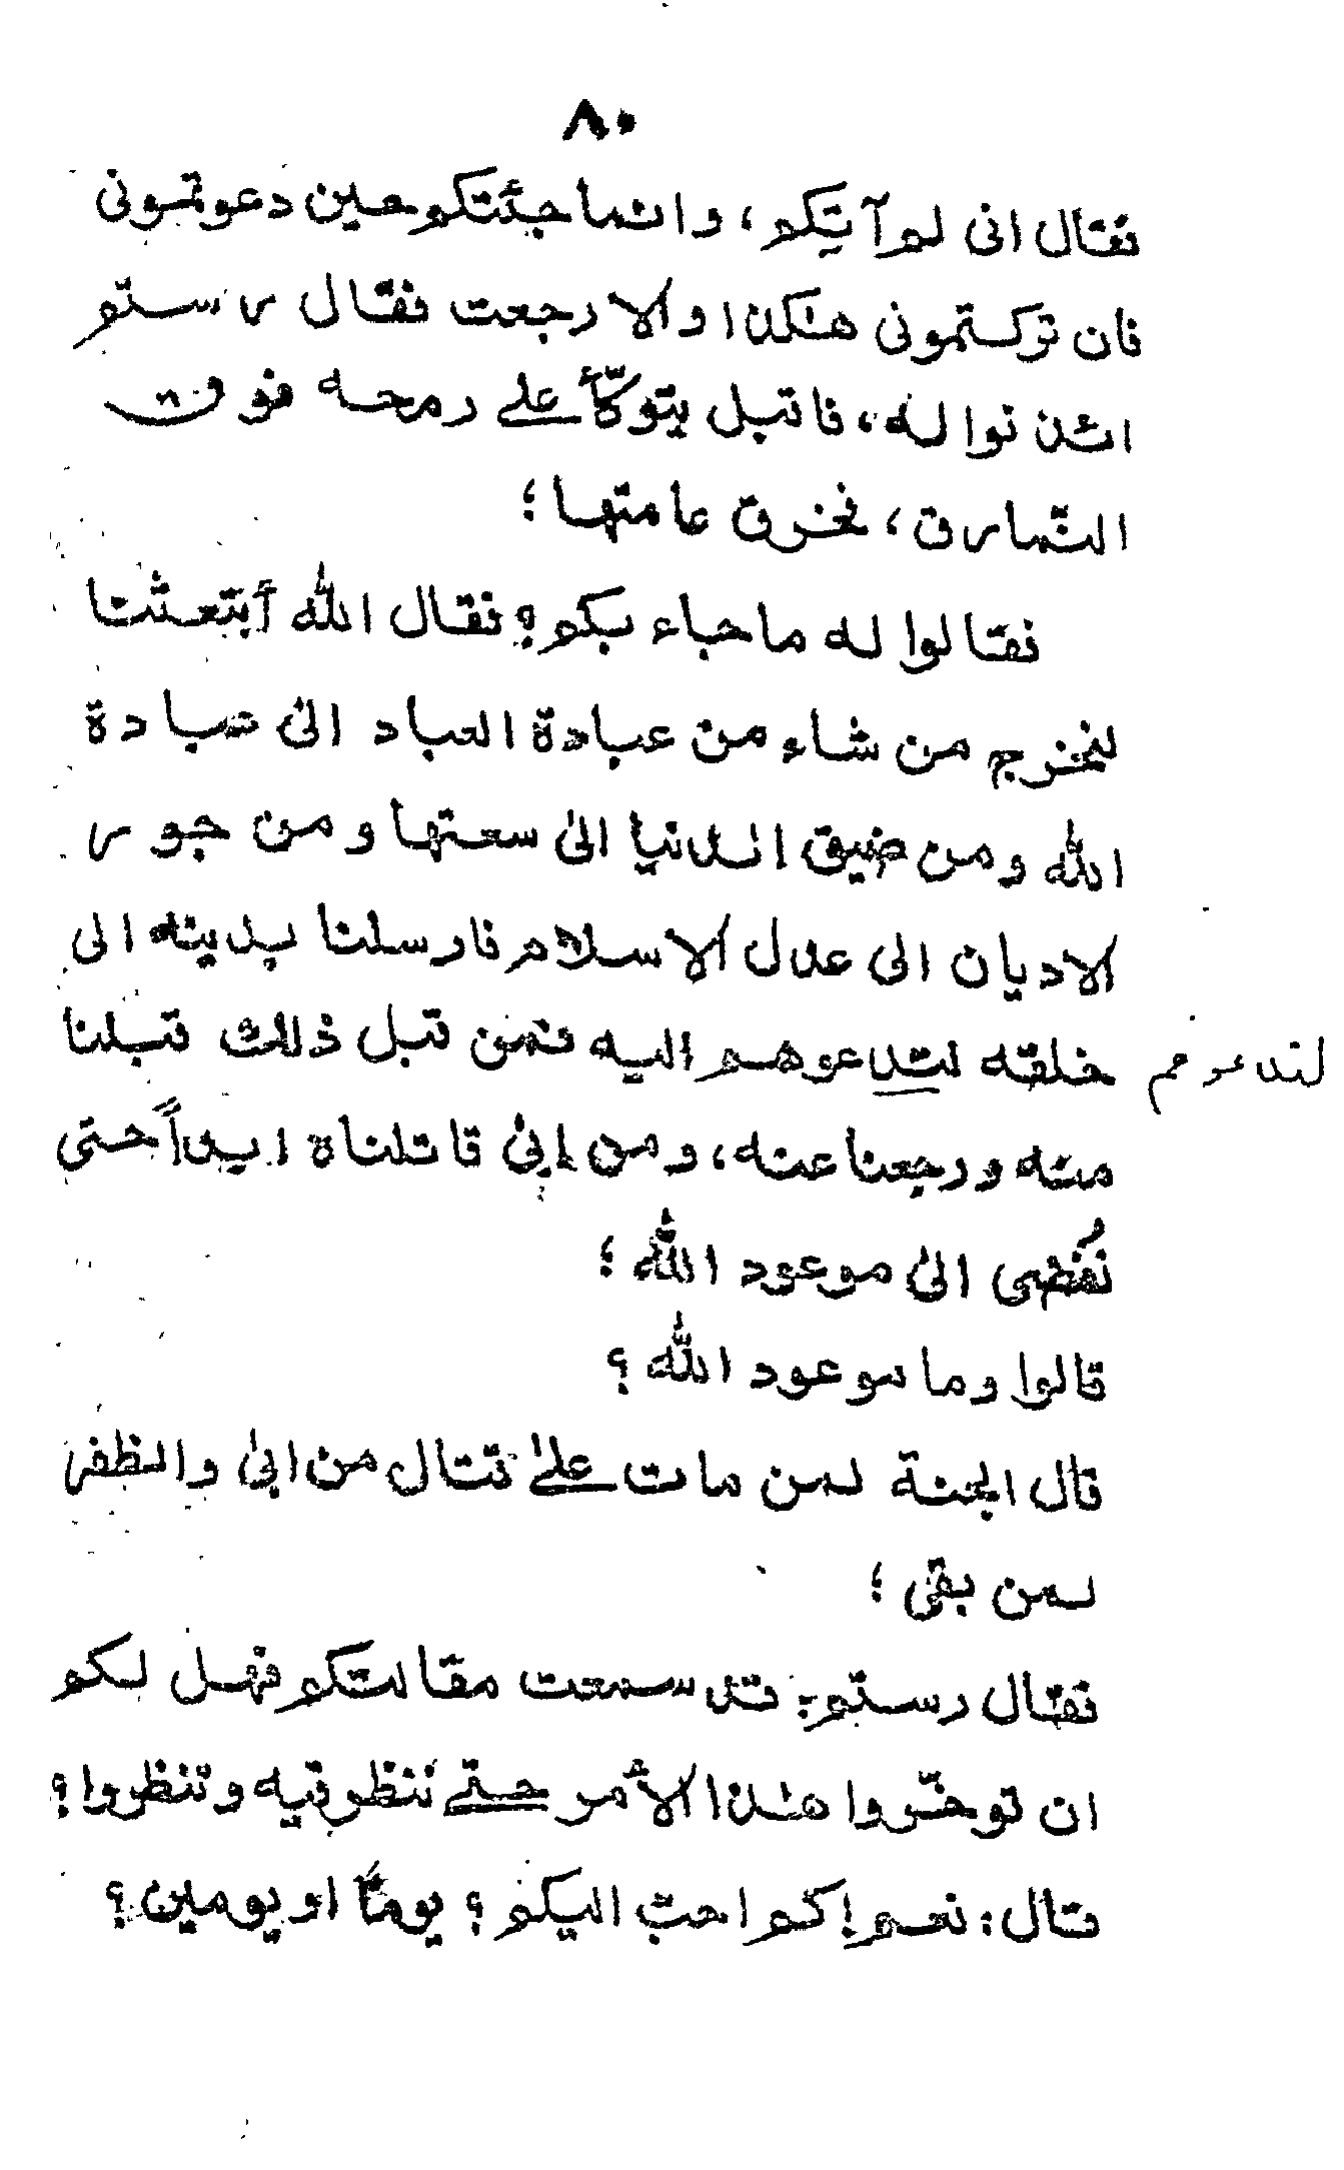 ٨٠
فقال انى لم آتيكم، وانما جئتكم حين دعوتمونى
فان تركتمونى هٰكذا والا رجعت فقال رستم
ائذنوا له، فاقبل يتوكّأ علے رمحه فوق
النّمارق، نخرق عامتها؛
فقالوا له ما جاء بكم؟ فقال الله أبتعثنا
لنخرج من شاء من عبادة العباد الىٰ عبادة
الله ومن ضيق الدنيا الىٰ سعتها ومن جور
الاديان الى عدل الاسلام فارسلنا بدينه الى
خلقه لتدعوهم اليه فمن قبل ذالك قبلنا
لندعوهم
منه ورجعنا عنه، ومن ابىٰ قاتلناه ابداً حتى
نُفضى الىٰ موعود الله؛
قالوا وما موعود الله؟
قال الجنة لمن مات علےٰ قتال من ابىٰ والظفر
لمن بقى؛
فقال رستم: قد سمعت مقالتكم فهل لكم
ان توخّروا هٰذا الأمر حتے ننظر فيه وتنظروا؟
قال: نعم! كم احبّ اليكم؟ يوماً او يومين؟